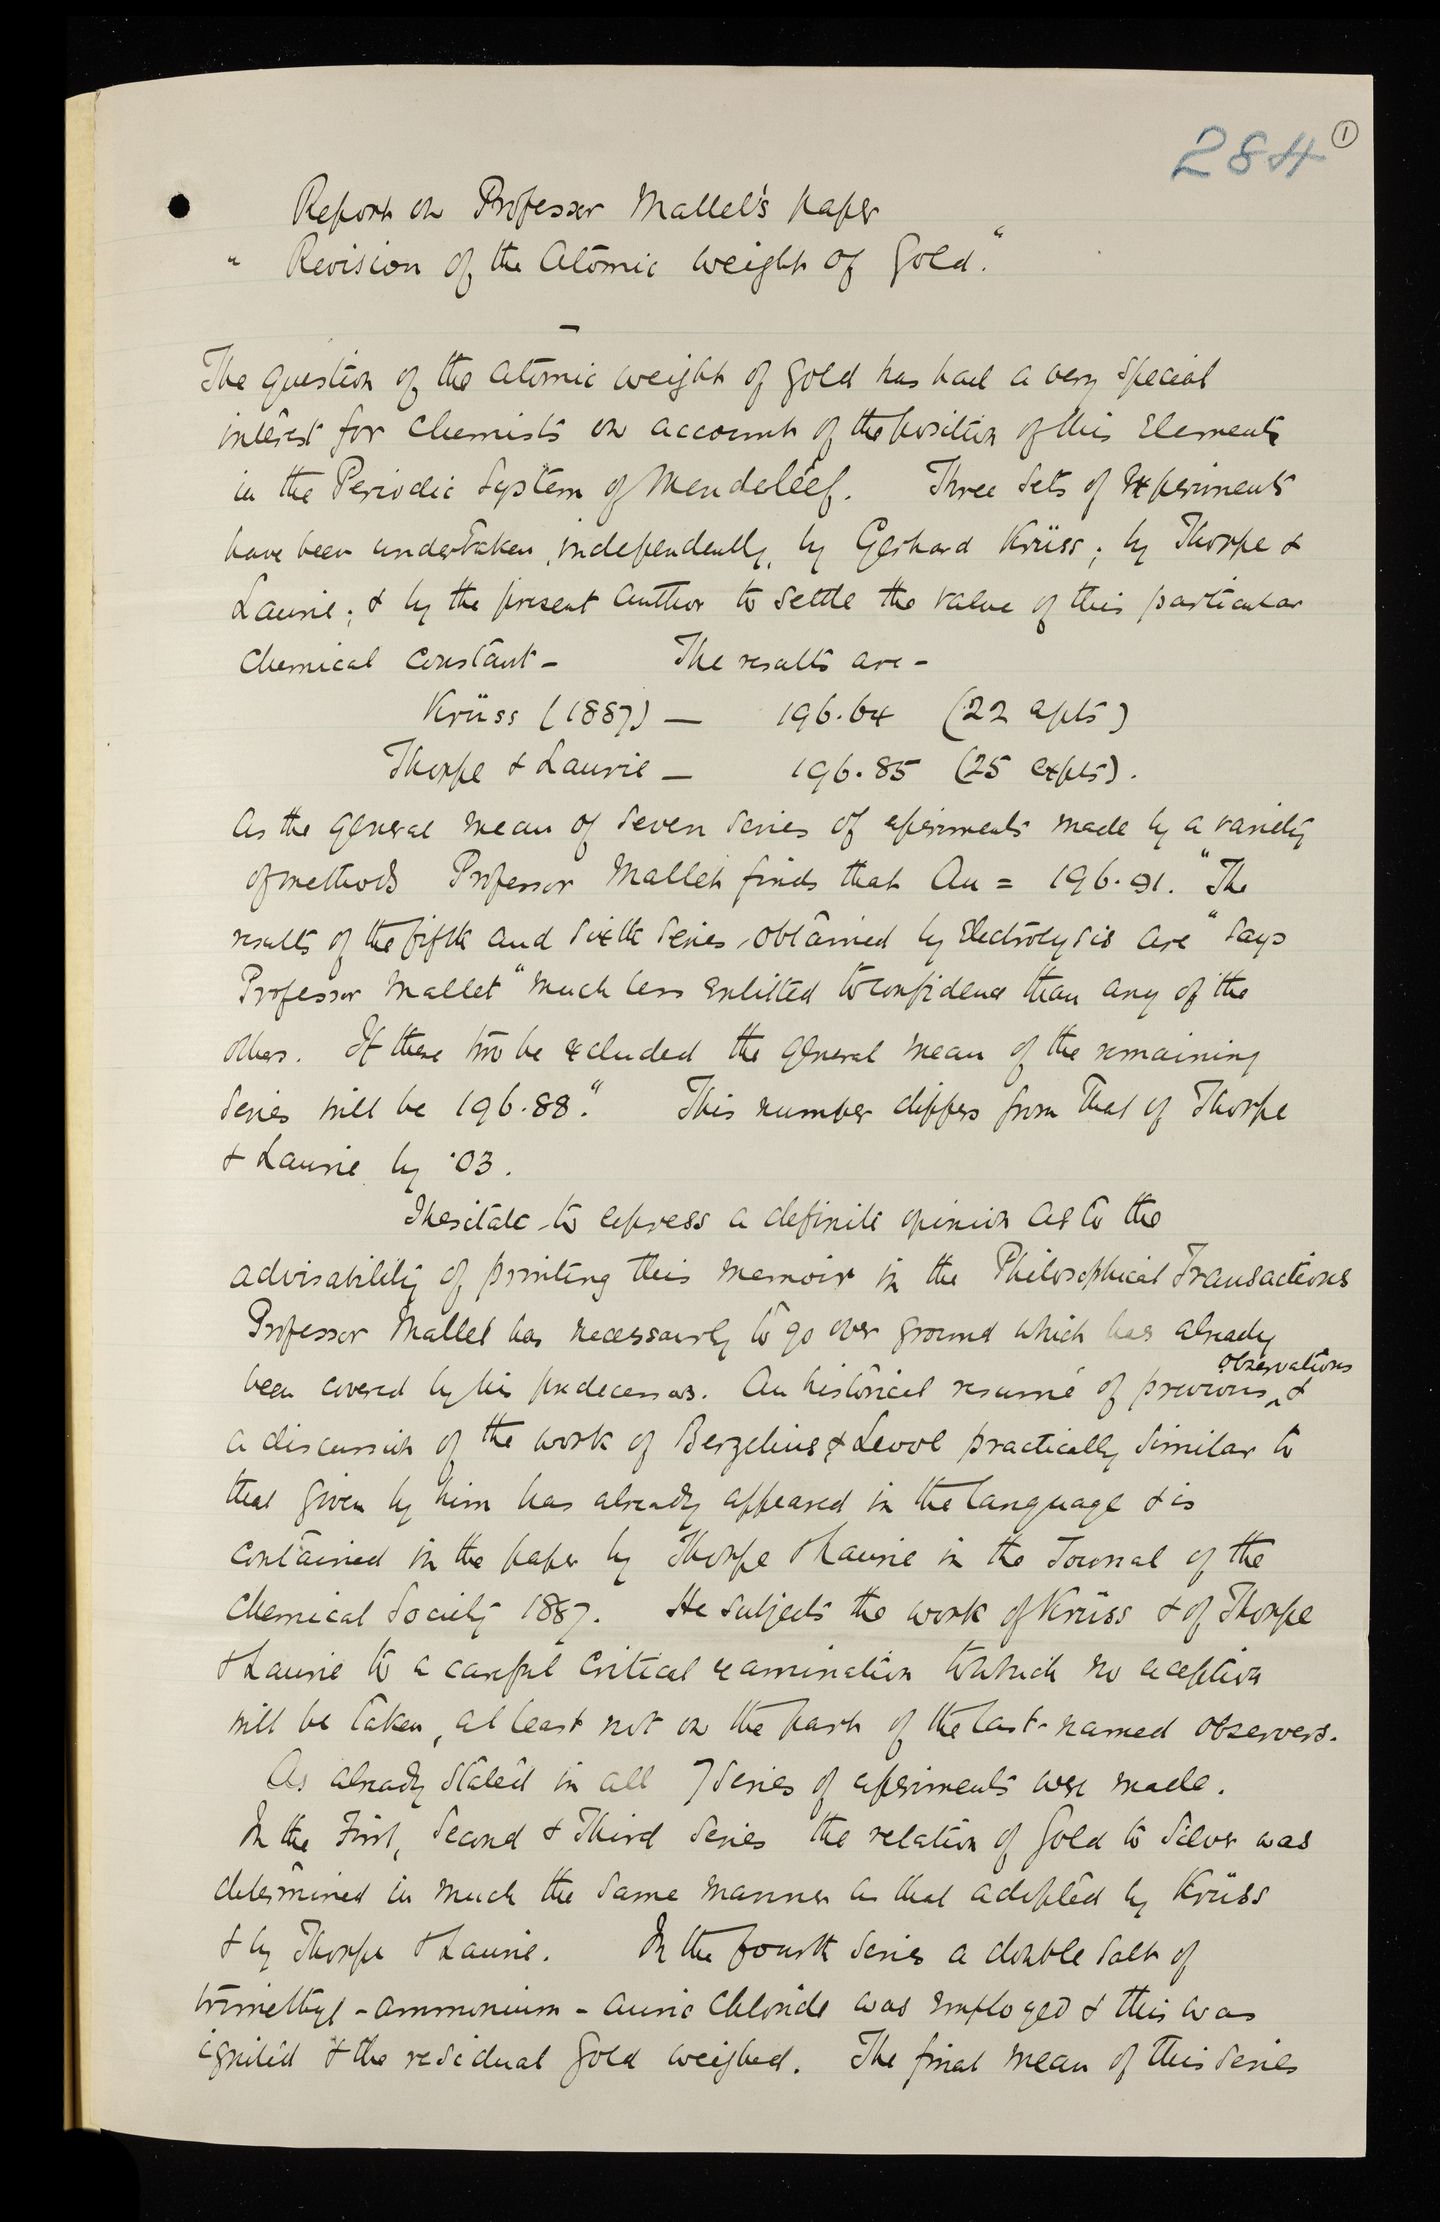 284 1
Report on Professor Mallet's paper
" Revision of the Atomic Weight of Gold."
The question of the atomic weight of gold has had a very special
interest for chemists on account of the position of this Element
in the Periodic System of Mendeléef. Three sets of experiments
have been undertaken, independently, by Gerhard Krüss; by Thorpe &
Laurie; & by the present author to settle the value of this particular
chemical constant - The results are -
Krüss (1887) — 196.64 (22 expts)
Thorpe & Laurie — 196.85 (25 expts).
As the general mean of seven series of experiments made by a variety
of methods Professor Mallet finds that Au = 196.91. "The
results of the fifth and sixth series, obtained by Electrolysis are" says
Professor Mallet "much less entitled to confidence than any of the
others. If these two be excluded the general mean of the remaining
series will be 196.88." This number differs from that of Thorpe
& Laurie by .03.
I hesitate to express a definite opinion as to the
advisability of printing this memoir in the Philosophical Transactions
Professor Mallet has necessarily to go over ground which has already
been covered by his predecessors. An historical resumé of previous observations &
a discussion of the work of Berzelius & Levol practically similar to
that given by him has already appeared in the language & is
contained in the paper by Thorpe & Laurie in the Journal of the
Chemical Society 1887. He subjects the work of Krüss & of Thorpe
& Laurie to a careful critical examination to which no exception
will be taken, at least not on the part of the last-named observers.
As already stated in all 7 series of experiments were made.
In the First, Second & Third series the relation of Gold to Silver was
determined in much the same manner as that adopted by Krüss
& by Thorpe & Laurie. In the fourth series a double salt of
trimethyl-ammonium-auric chloride was employed & this was
ignited & the residual Gold weighed. The final mean of this series